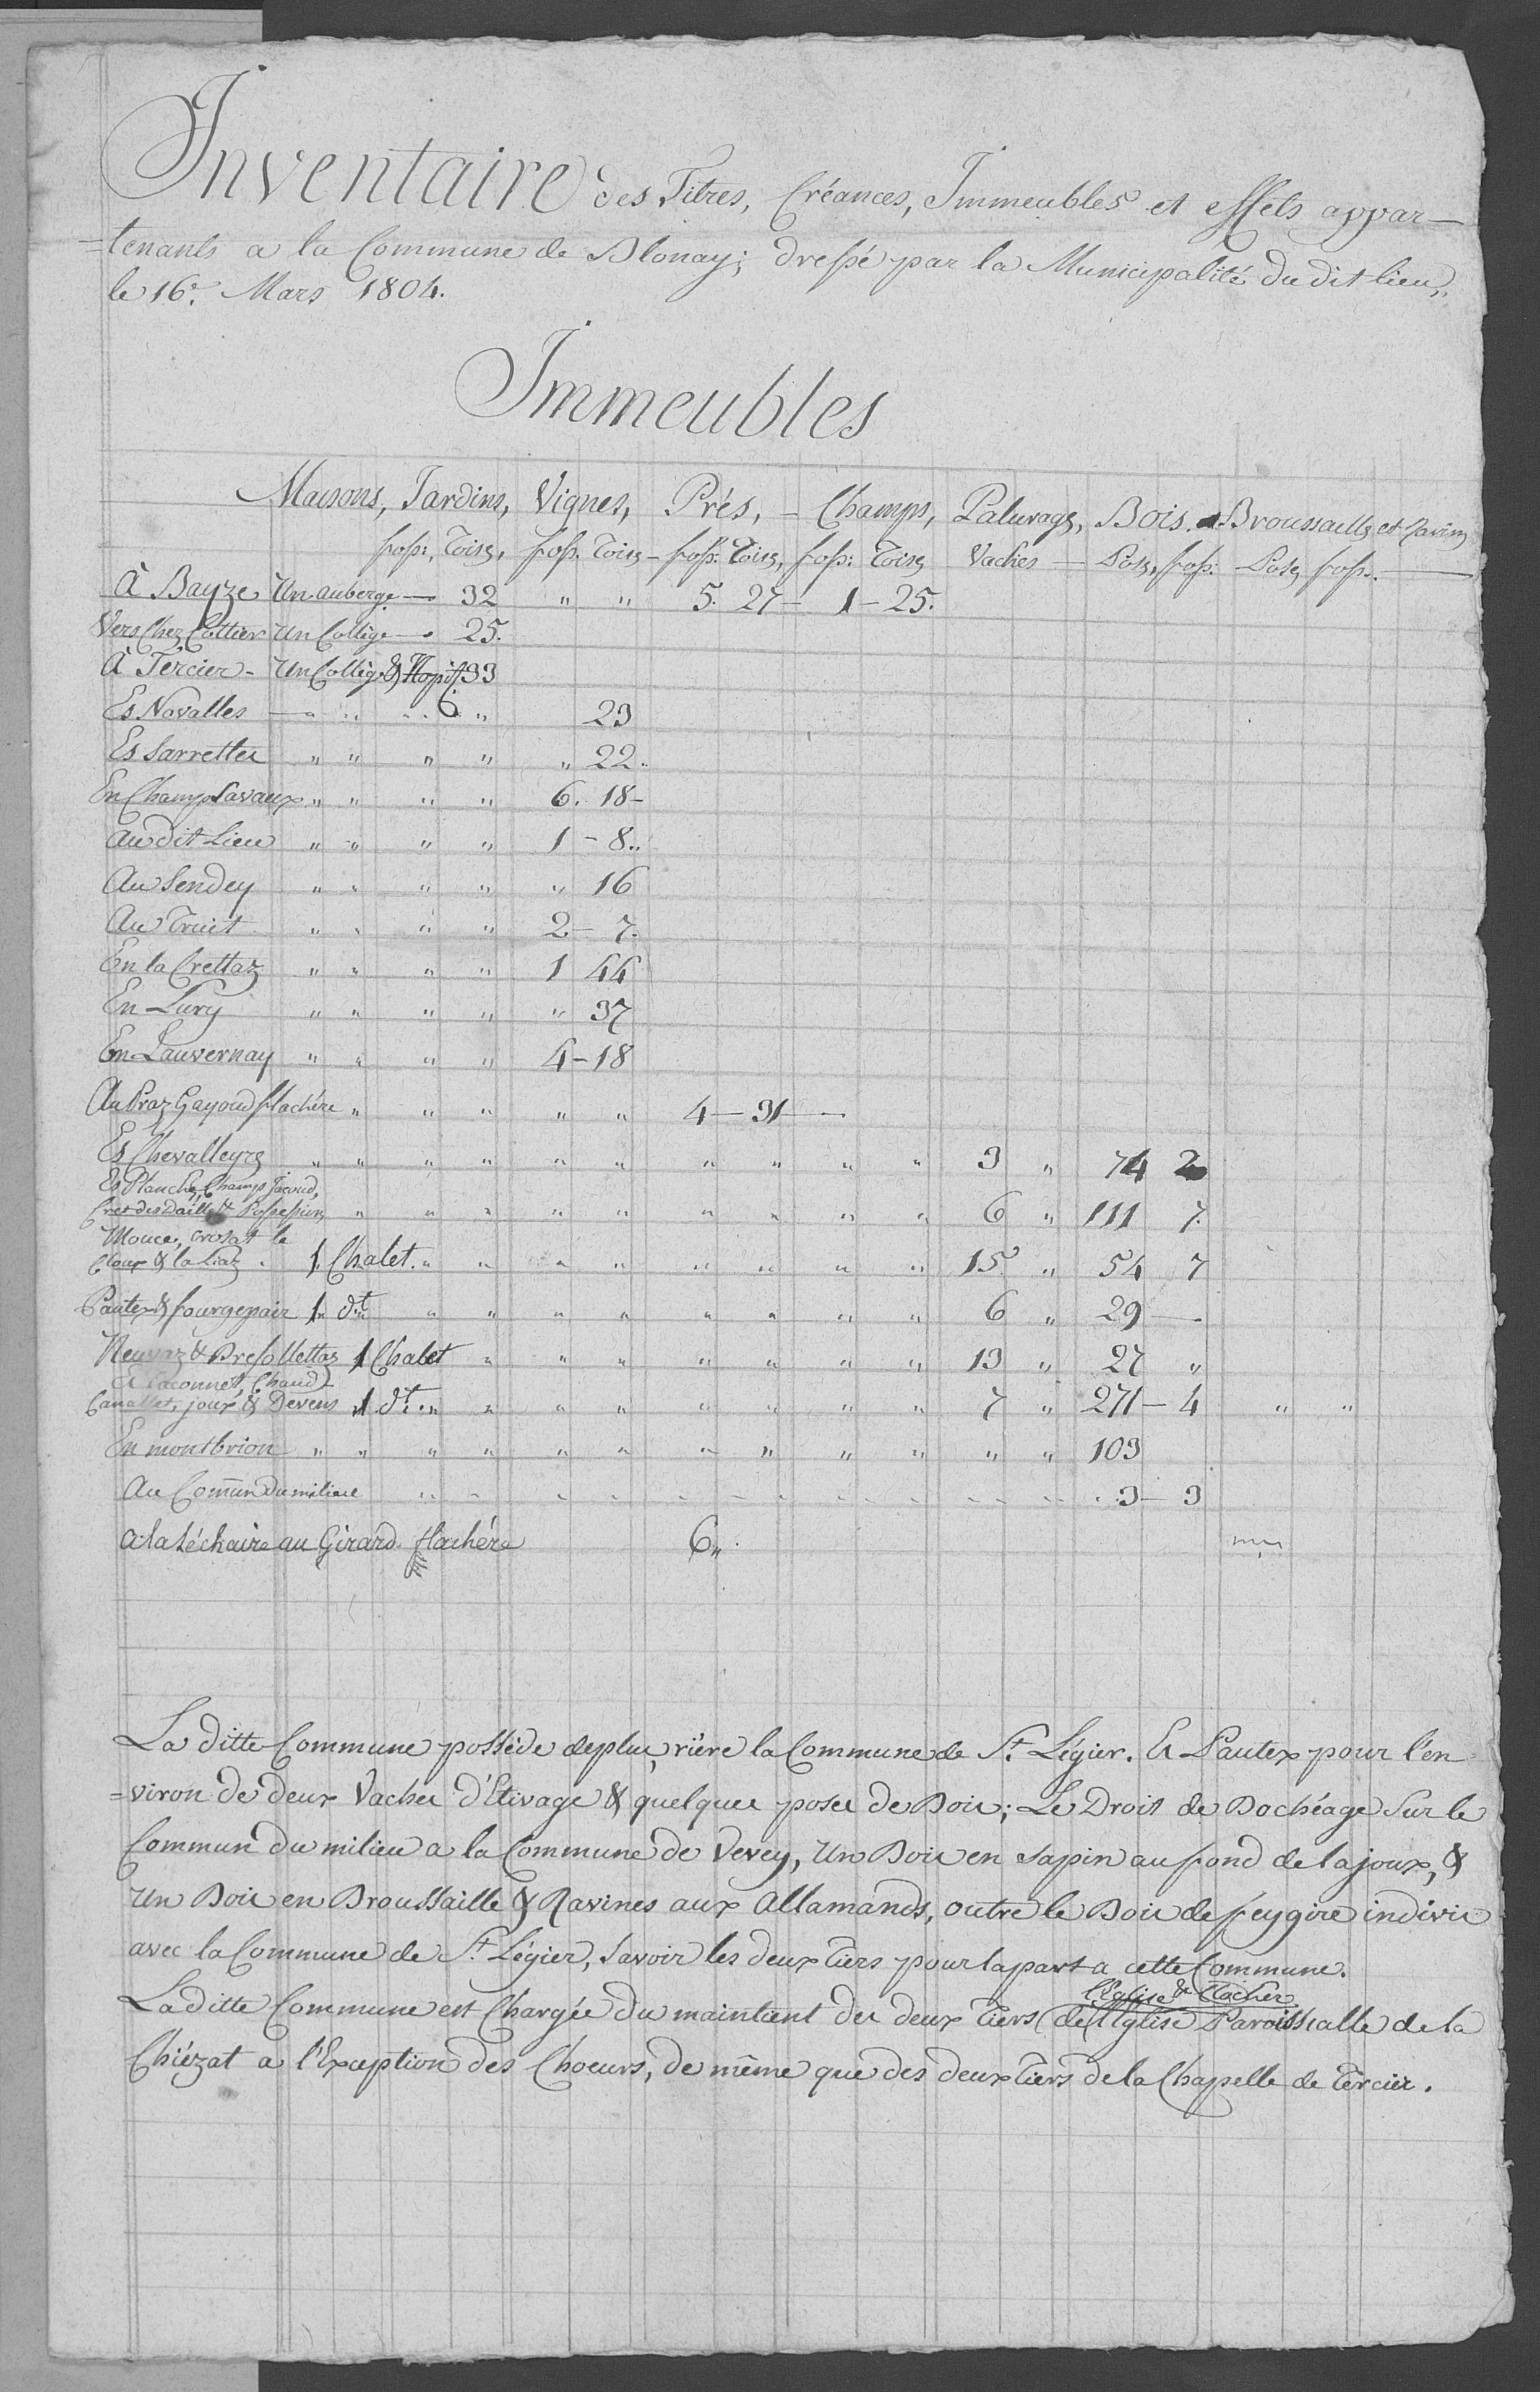 Inventaire des Titres, Créances, Immeubles et effets appar-
=tenants a la Commune de Blonay; dressé par la Municipalité du dit lieu,
le 16e. Mars 1804.
Immeubles
Maisons, Jardins, Vignes, Prés, - Champs, Paturages, Bois. Broussailles et Ravins
foss: Toises, foss. Toises - foss: Toises, foss: Toises Vaches - Poses, foss: Poses foss.
à Bayze Un auberge - 32 " " 5. 27 - 1 - 25.
Vers Chez Cottier Un Collège - 25.
à Tercier - Un Collège & Hopit. 33
Es Novalles - " " " " 23
Es Sarrettes " " " " " 22.
En Champ Savaux " " " " 6. 18 -
Au dit Lieu " " " " 1 - 8 "
Au Sendey " " " " " 16
Au Truit " " " " 2 - 7.
En la Crettaz " " " " 1 44
En Lury " " " " " 37
En Lauvernay " " " " 4 - 18
Au Praz Gayoud flachére " " " " " 4 - 31 -
Es Chevalleyres " " " " " " " " " " 3 " 74 2
Es Planches, Champ Jacoud,
Cret des Dailles & Possessions " " " " " " " " " 6 " 111 7.
Mouce, crosat le
Cloux & la Liaz 1. Chalet. " " " " " " " " 15. " 54 7
Pautex & fourgepair 1. dt. " " " " " " " " 6 " 29 -
Neuvaz & Bresollettaz 1 Chalet " " " " " " " 13 " 27 "
Chaud
Canallet, joux & Devens 1 dt. " " " " " " " " 7 " 271 - 4 " "
En montbrion " " " " " " " " " " " " 103
Au Comun du milieu " " " " " " " " " " " 3 - 3
a la Léchaire au Girard flachére 6 "
La ditte Commune possède deplus, rière la Commune de St. Légier. Es Pautex pour l'en-
=viron de deux Vaches d'Etivage & quelques poses de Bois; Le Droit de Bochéage sur le
Commun du milieu a la Commune de Vevey, Un Bois en sapin au fond de la joux, &
un Bois en Broussaille & Ravines aux Allamands, outre le Bois de feygire indivis
avec la Commune de St. Légier, savoir les deux tiers pour la part a cette Commune.
l'Eglise & Clocher
La ditte Commune est Chargée du maintient des deux tiers de l'Eglise Paroissialle de la
Chiézat a l'Exception des Choeurs, de même que des deux tiers de la Chapelle de Tercier.